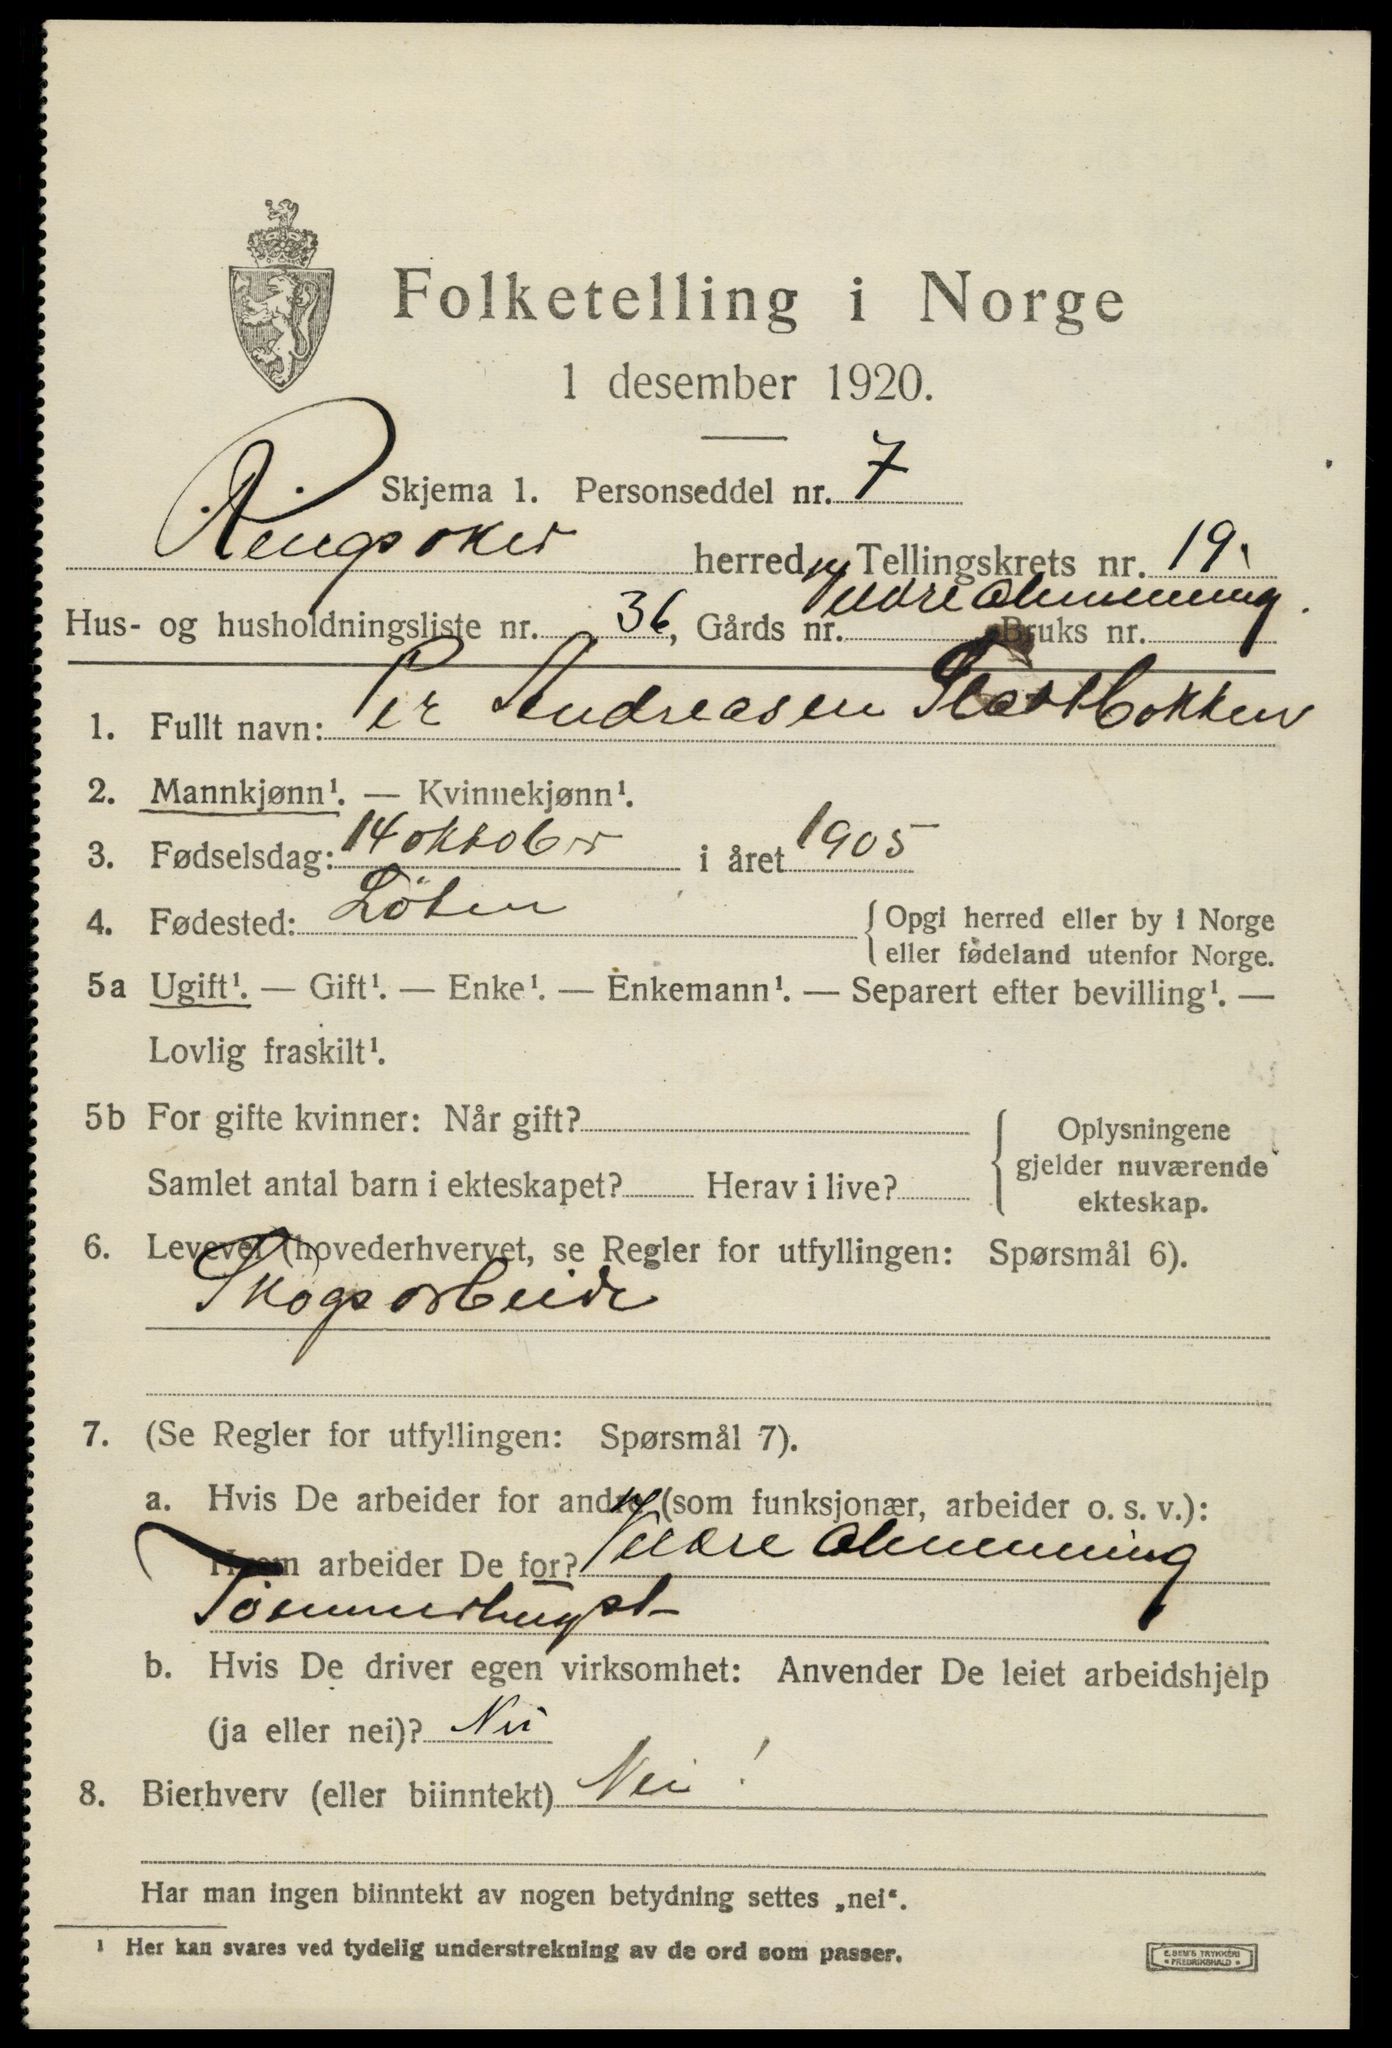 Folketelling i Norge
1 desember 1920.
Skjema 1. Personseddel nr. 7
Ringsaker herred, Tellingskrets nr. 19.
Veldre Almenning.
Hus- og husholdningsliste nr. 36, Gårds nr. Bruks nr.
1. Fullt navn: Per Andreasen
2. Mannkjønn¹. — Kvinnekjønn¹.
3. Fødselsdag: 14 oktober i året 1905
4. Fødested: Löten {Opgi herred eller by i Norge
eller fødeland utenfor Norge.
5a Ugift¹. — Gift¹. — Enke¹. — Enkemann¹. — Separert efter bevilling¹. —
Lovlig fraskilt¹.
5b For gifte kvinner: Når gift? {Oplysningene
gjelder nuværende
Samlet antal barn i ekteskapet? Herav i live? ekteskap.
6. Levevei (hovederhvervet, se Regler for utfyllingen: Spørsmål 6).
Skogsarbeide
7. (Se Regler for utfyllingen: Spørsmål 7).
a. Hvis De arbeider for andre (som funksjonær, arbeider o. s. v.):
Hvem arbeider De for? Veldre Almenning
Tömmerhugst
b. Hvis De driver egen virksomhet: Anvender De leiet arbeidshjelp
(ja eller nei)? Nei
8. Bierhverv (eller biinntekt) Nei!
Har man ingen biinntekt av nogen betydning settes „nei“.
¹ Her kan svares ved tydelig understrekning av de ord som passer.
E. SEM'S TRYKKERI
* FREDRIKSHALD *